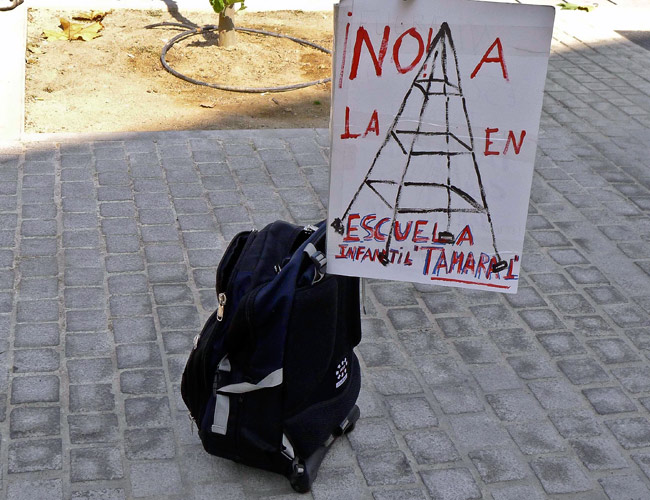 ¡NO! A
LA EN
ESCUELA
INFANTIL